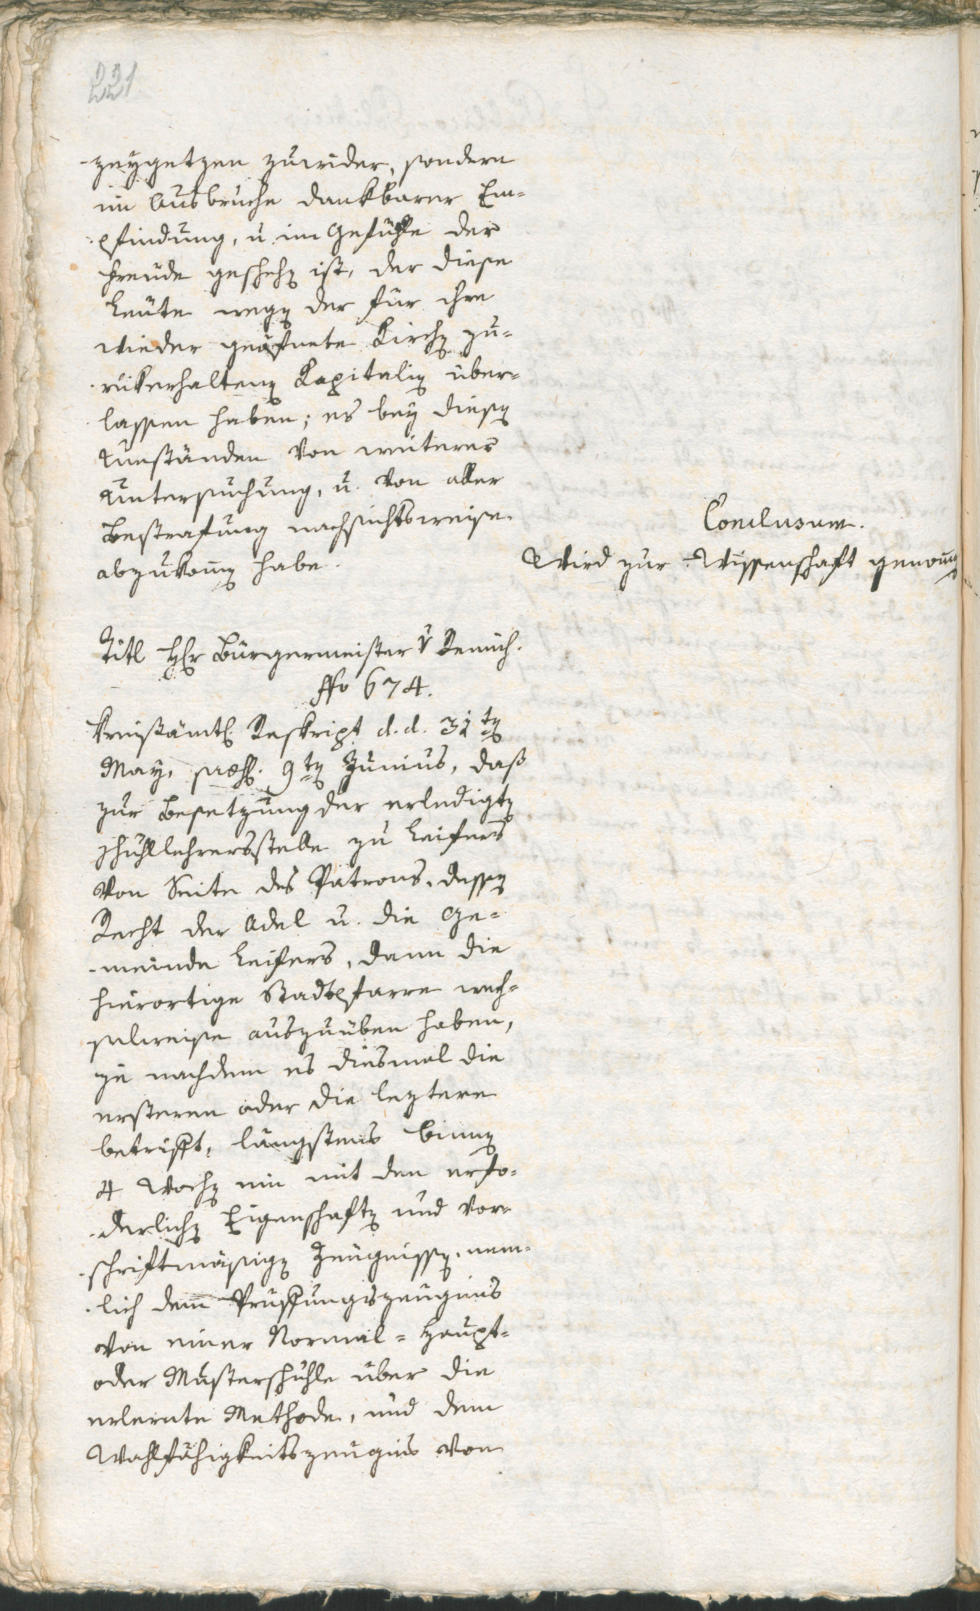 221
-zeygetzen zuwider, sondern
im Ausbruche dankbarer Em-
-pfindung, u. im Gefühle der
Freude geschehen ist, der diese
Leute wegen der für ihre
wieder geöfnete Kirchen zu-
-rükerhaltenen Kapitalien über-
-lassen haben; es bey diesen
Umständen von weiterer
Untersuchung, u. von aller
Bestrafung nachsichtsweise
abzukommen habe.
Conclusum.
Wird zur Wissenschaft genommen
Titl Hr Bürgermeister v Remich.
No 674.
Kreisämtl. Reskript d. d. 31ten
May, præs. 9ten Junius, daß
zur Besetzung der erledigten
Schullehrersstelle zu Leifers
von Seite des Patrons, dessen
Recht der Adel u. die Ge-
-meinde Leifers, dann die
hierortige Stadtpfarre wech-
selweise auszuüben haben,
je nachdem es diesmal die
ersteren oder die leztere
betrifft, längstens binnen
4 Wochen ein mit den erfo-
-derlichen Eigenschaften und vor-
-schriftmäsigen Zeugnissen, nem-
-lich dem Prüffungszeugnis
von einer Normal-Haupt-
oder Musterschuhle über die
erlernte Methode, und dem
Wahlfähigkeitszeugnis von